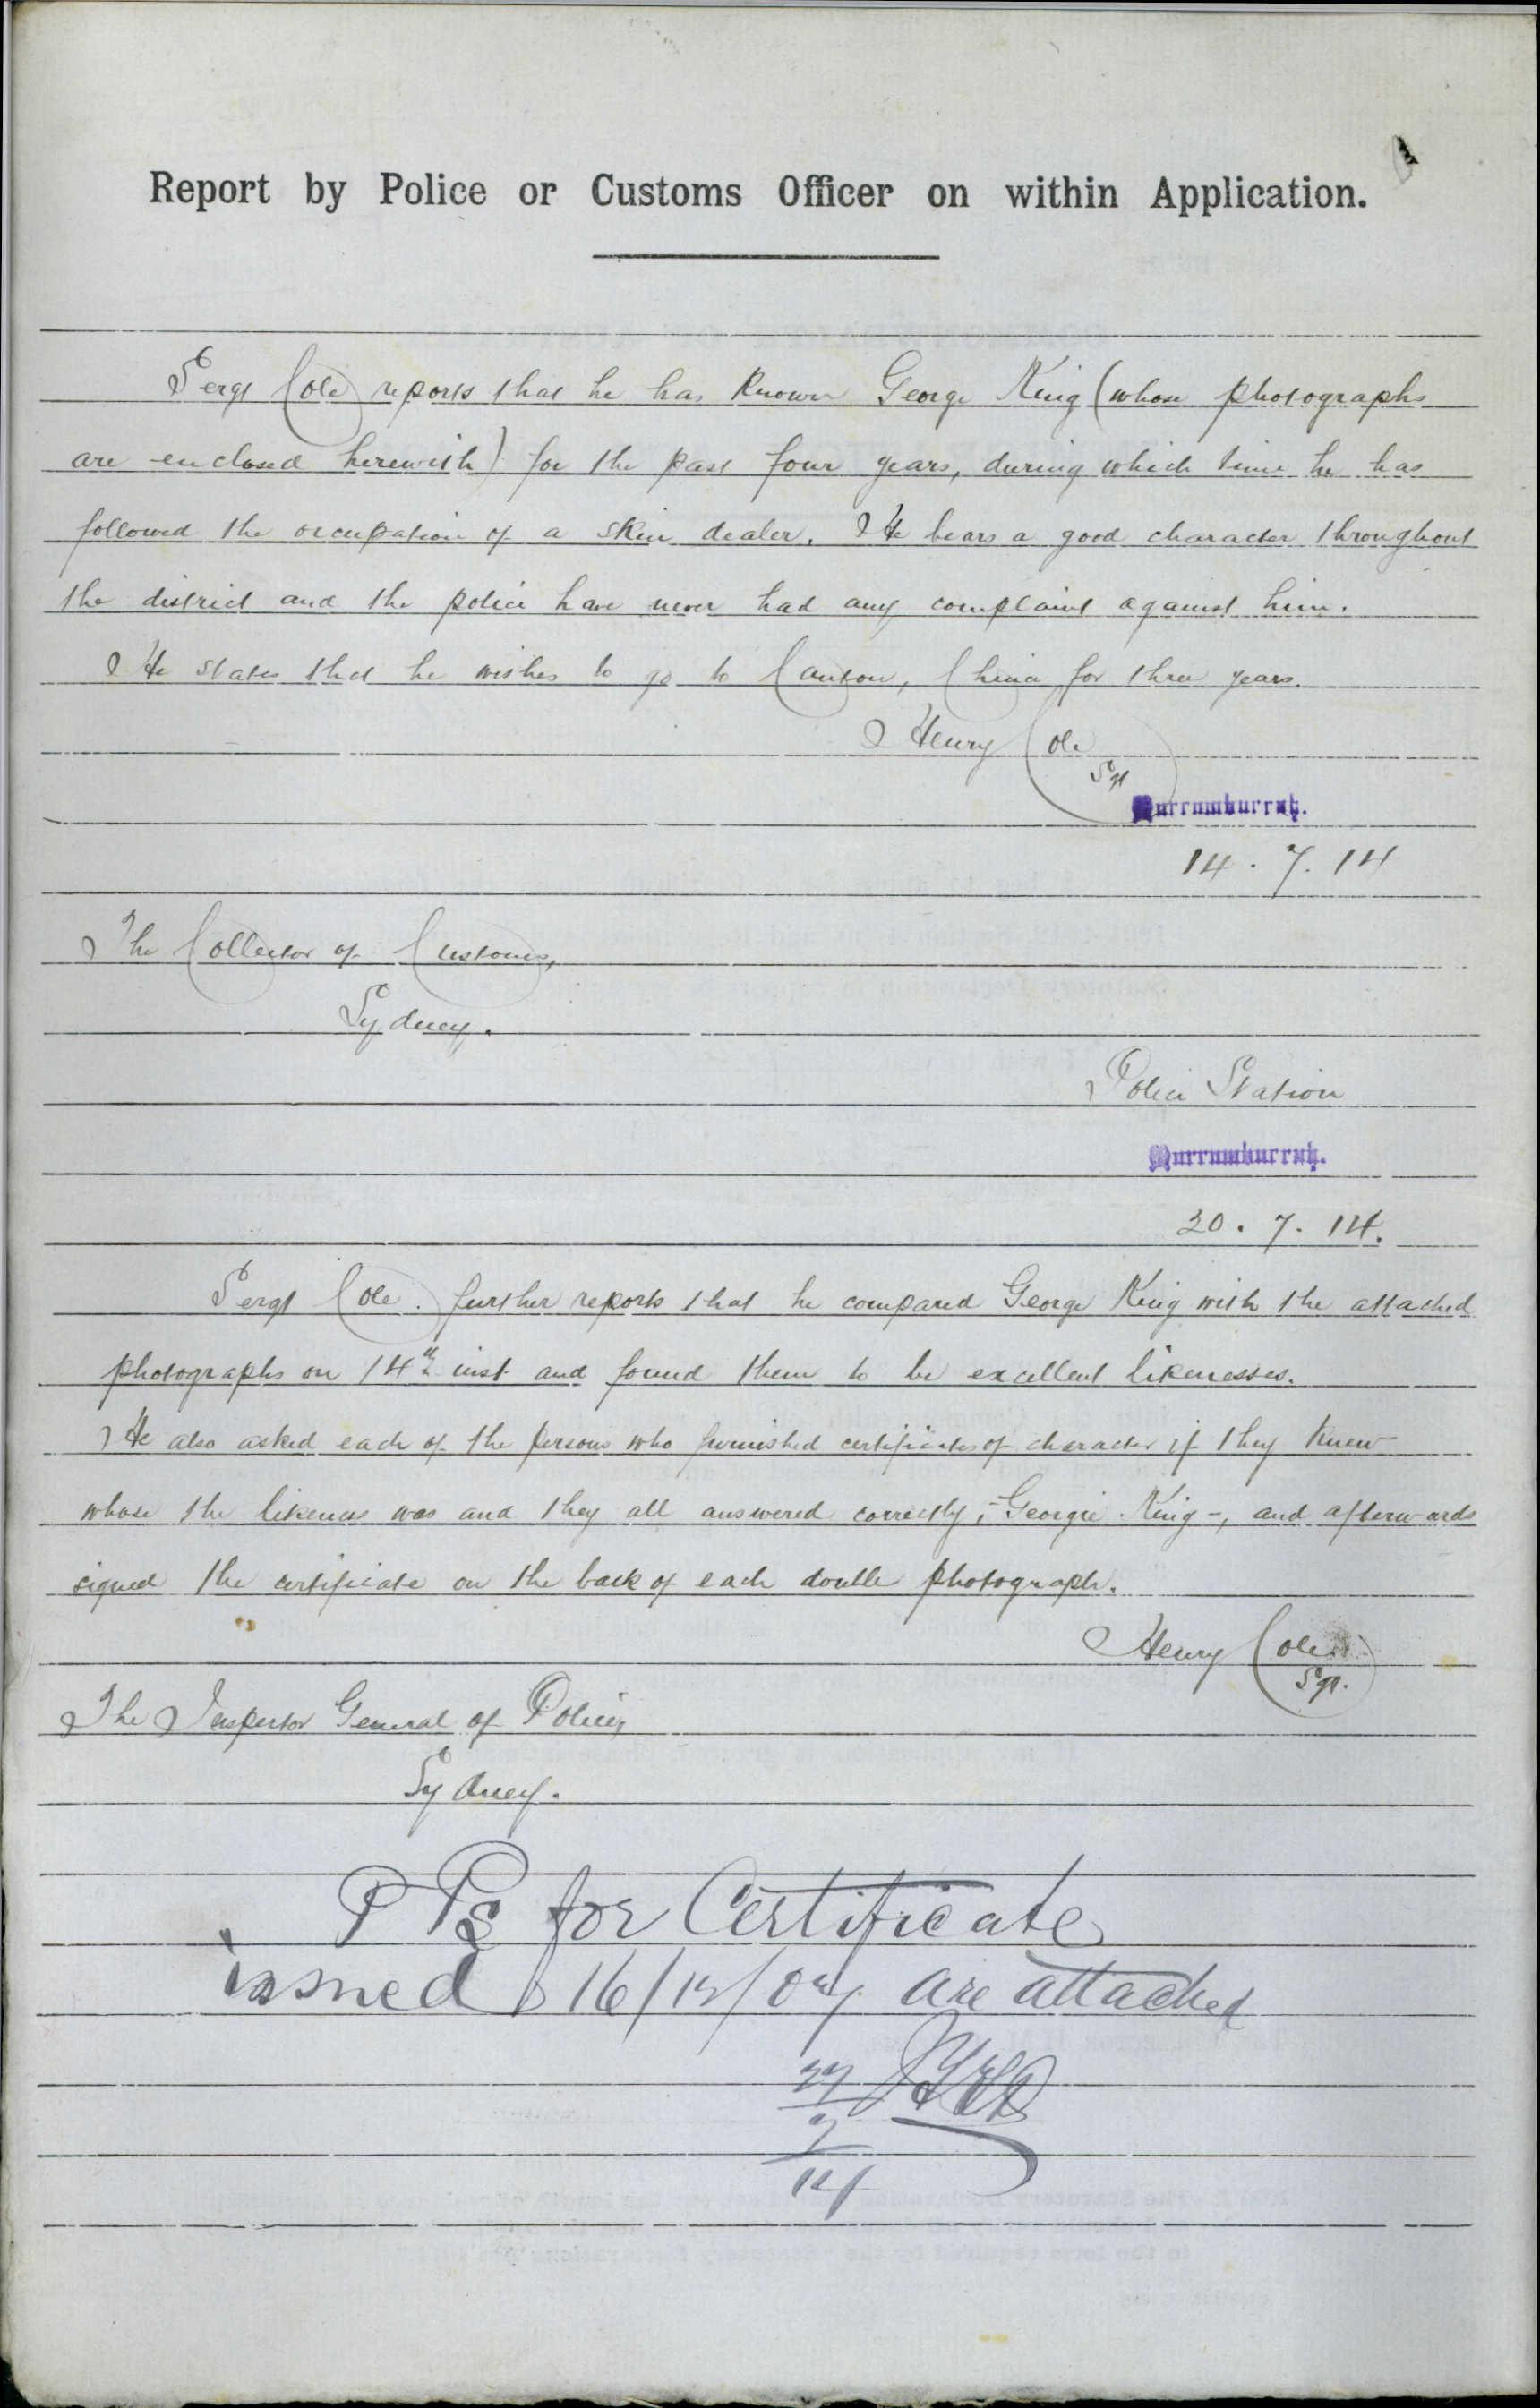 Report by Police or Customs Officer on within Application.
Sergt Cole reports that he has known George King (whose photographs
are enclosed herewith) for the past four years, during which time he has
followed the occupation of a skin dealer. He bears a good character throughout
the district and the police have never had any complaint against him.
He states that he wishes to go to Canton, China for three years.
Henry Cole
Sgt
Murrumburrah.
14. 7. 14
The Collector of Customs,
Sydney.
Police Station
Murrumburrah.
20. 7. 14.
Sergt Cole further reports that he compared George King with the attached
photographs on 14th inst. and found them to be excellent likenesses.
He also asked each of the persons who furnished certificates of character if they knew
whose the likeness was and they all answered correctly, - Georgie King -, and afterwards
signed the certificate on the back of each double photograph.
Henry Cole
Sgt.
The Inspector General of Police,
Sydney.
PPs for Certificate
issued 16/12/07 are attached
27
7
14